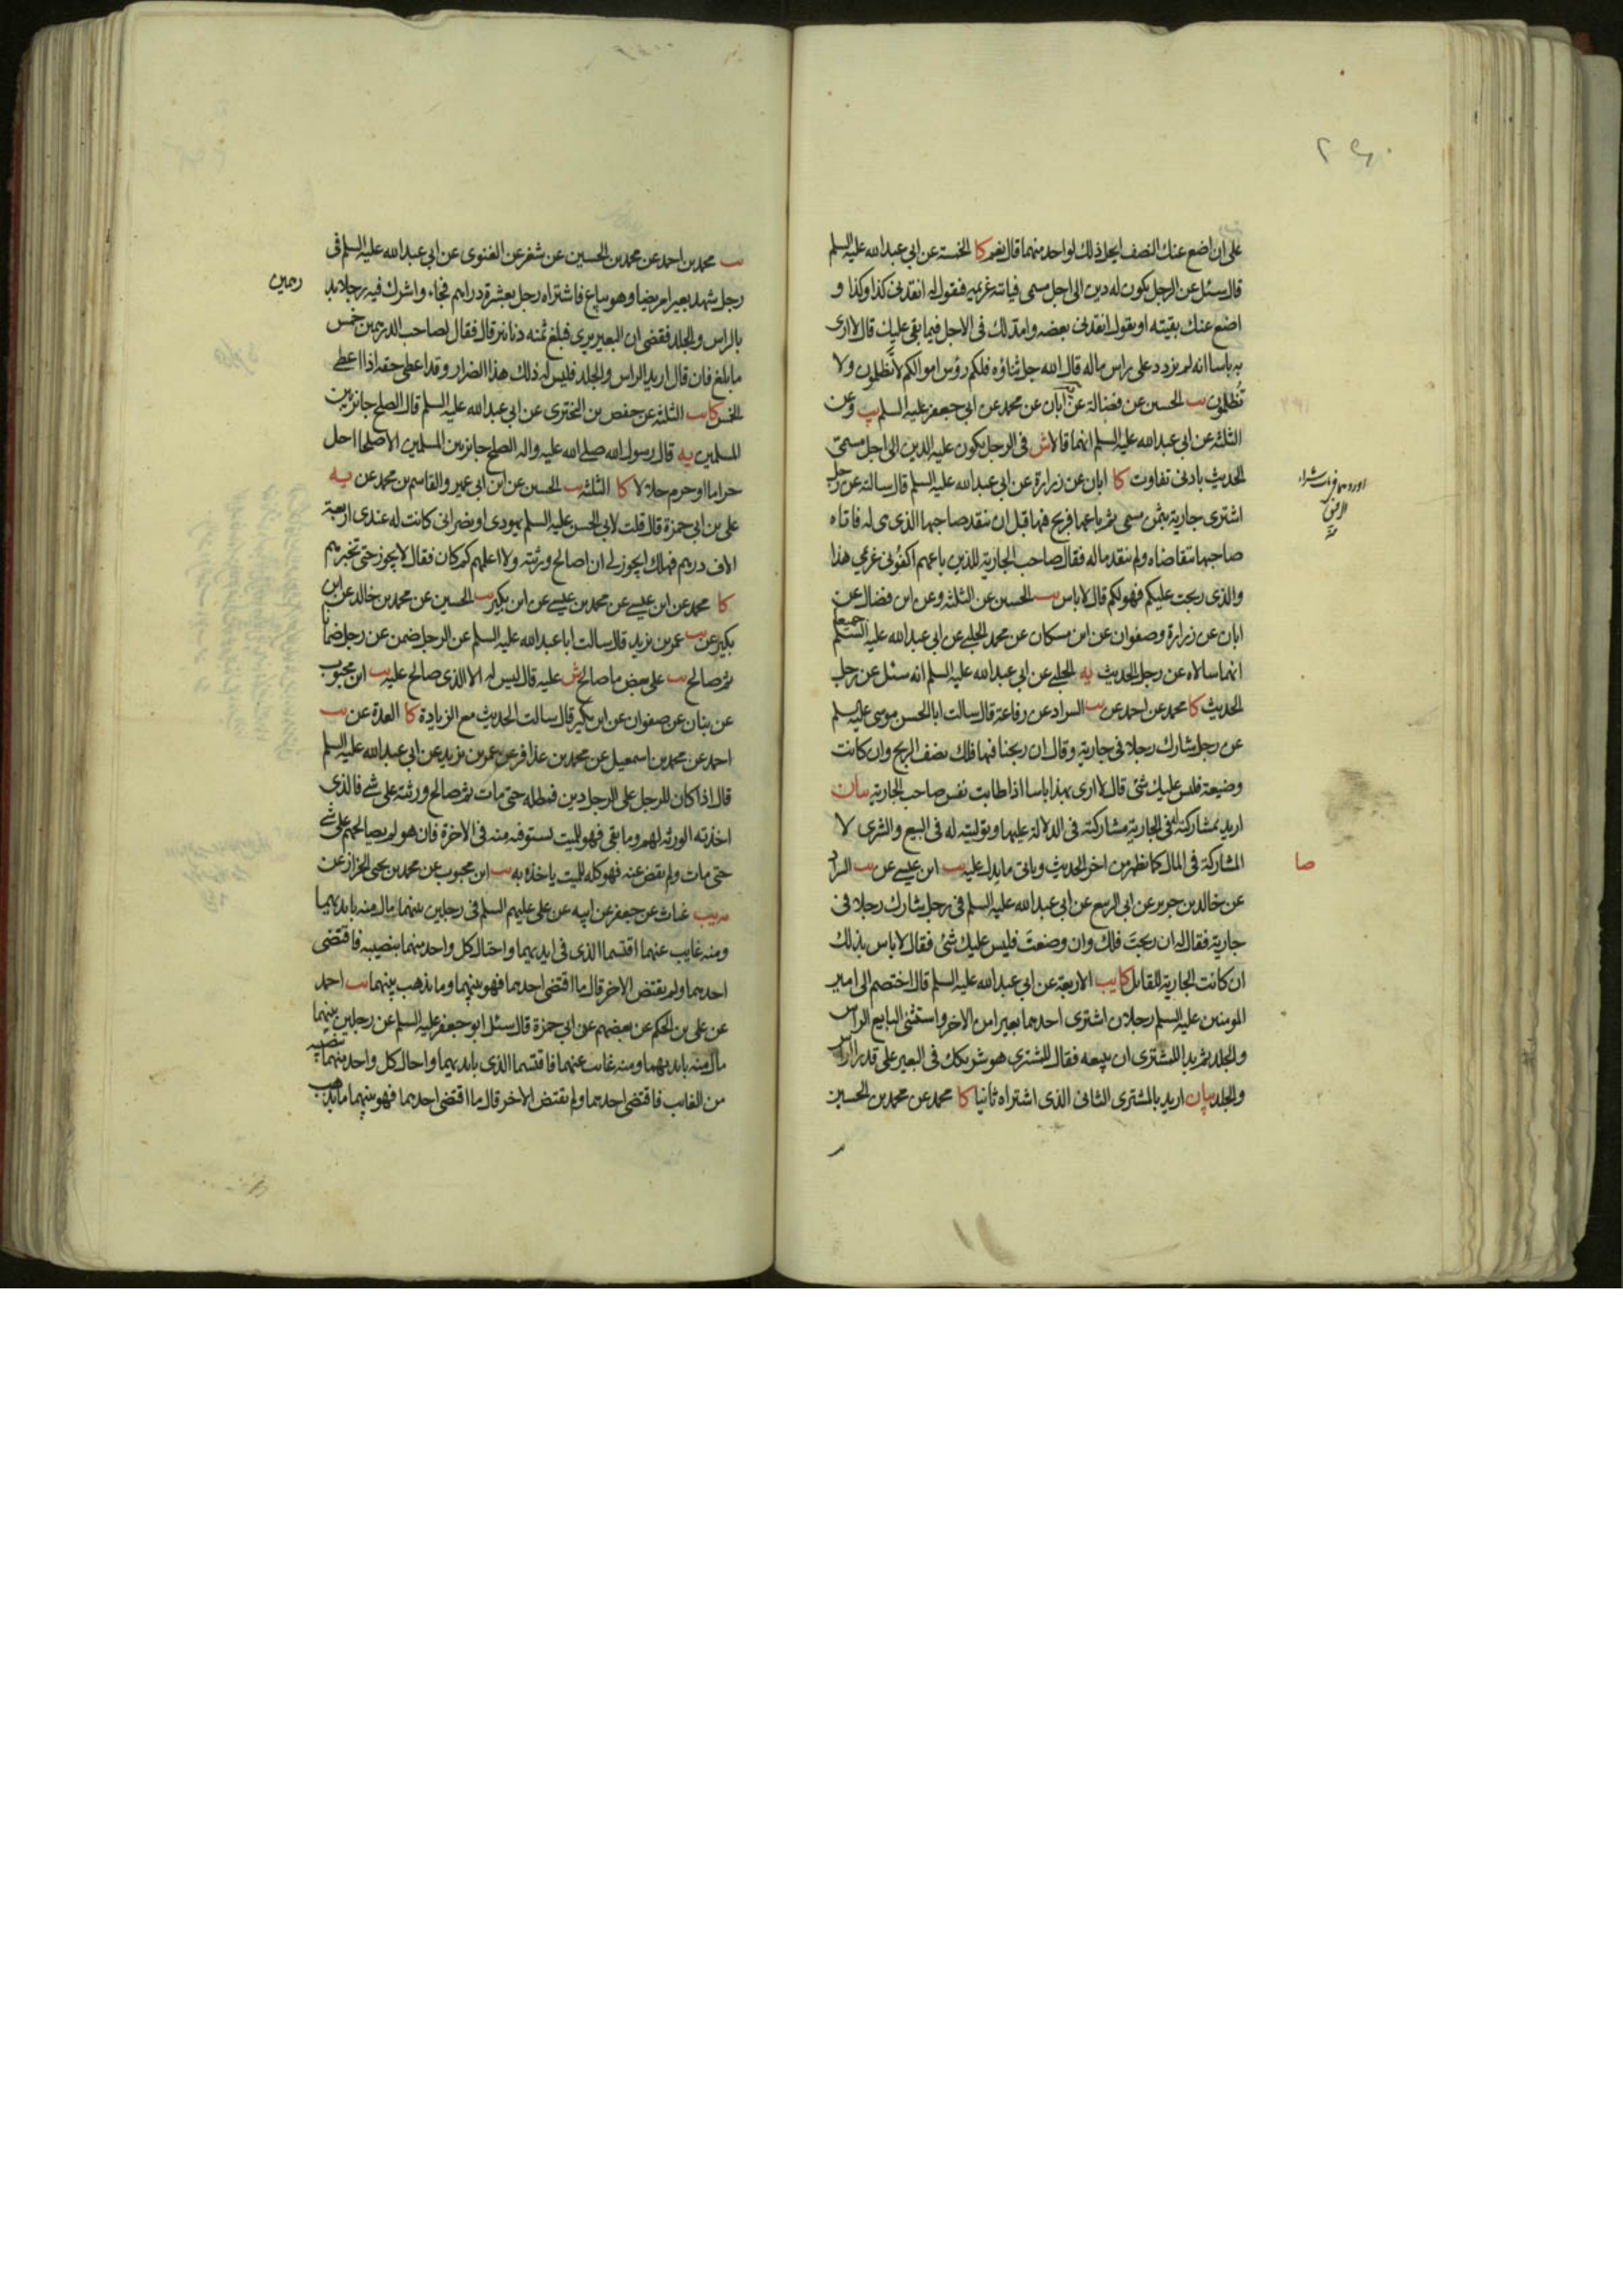 على ان اضع عنك النصف ايحل ذلك لواحد منهما قال نعم كا الخمسة عن ابي عبد الله عليه السلم
قال سئل عن الرجل يكون له دين الى اجل مسمى فياتيه غريمه فيقول له انقدنى كذا وكذا و
اضع عنك بقيته او يقول انقدنى بعضه وامد لك فى الاجل فيما بقى عليك قال لا ارى
به باسا انه لم يزدد على راس ماله قال الله جل ثناؤه فلكم رؤس اموالكم لا تظلمون ولا
تظلمون يب الحسين عن فضالة عن ابان عن محمد عن ابى جعفر عليه السلم يب وعن
الثلثة عن ابى عبد الله عليه السلم انهما قالا ش فى الرجل يكون عليه الدين الى اجل مسمى
الحديث بادنى تفاوت كا ابان عن زرارة عن ابى عبد الله عليه السلم قال سالته عن رجل
اشترى جارية بثمن مسمى ثم باعها فربح فيها قبل ان ينقد صاحبها الذى هى له فاتاه
صاحبها يتقاضاه ولم ينقد ماله فقال صاحب الجارية للذين باعهم اكفونى غريمى هذا
والذى ربحت عليكم فهو لكم قال لا باس يب الحسين عن الثلثة وعن ابن فضال عن
ابان عن زرارة وصفوان عن ابن مسكان عن محمد الحلبى جميعا عن ابى عبد الله عليه السلم
انهما سالاه عن رجل الحديث يه الحلبى عن ابى عبد الله عليه السلم انه سئل عن رجل
الحديث كا محمد عن احمد عن يب السراد عن رفاعة قال سالت ابا الحسن موسى عليه السلم
عن رجل شارك رجلا فى جارية وقال ان ربحنا فيها فلك نصف الربح وان كانت
وضيعة فليس عليك شئ قال لا ارى بهذا باسا اذا طابت نفس صاحب الجارية بيان
اريد بمشاركته فى الجارية مشاركته فى الدلالة عليها وتوليته له فى البيع والشرى لا
المشاركة فى المال كما يظهر من اخر الحديث وياتى ما يدل عليه يب ابن عيسى عن يب السراد
عن خالد بن جرير عن ابى الربيع عن ابى عبد الله عليه السلم فى رجل شارك رجلا فى
جارية فقال له ان ربحت فلك وان وضعت فليس عليك شئ فقال لا باس بذلك
ان كانت الجارية للقائل كا يب الاربعة عن ابى عبد الله عليه السلم قال اختصم الى امير
المومنين عليه السلم رجلان اشترى احدهما بعيرا من الاخر واستثنى البايع الراس
والجلد ثم بدا للمشترى ان يبيعه فقال للمشترى هو شريكك فى البعير على قدر الراس
والجلد بيان اريد بالمشترى الثانى الذى اشتراه ثانيا كا محمد عن محمد بن الحسين
صا
يب محمد بن احمد عن محمد بن الحسين عن شغر عن الغنوى عن ابى عبد الله عليه السلم فى
رجل شهد بعيرا مريضا وهو يباع فاشتراه رجل بعشرة دراهم فجاء واشرك فيه رجلا بد
رهمين
بالراس والجلد فقضى ان البعير برى فبلغ ثمنه دنانير قال فقال لصاحب الدرهمين خمس
ما بلغ فان قال اريد الراس والجلد فليس له ذلك هذا الضرار وقد اعطى حقه اذا اعطى
الخمس كا يب الثلثة عن حفص بن البخترى عن ابى عبد الله عليه السلم قال الصلح جائز بين
المسلمين يه قال رسول الله صلى الله عليه واله الصلح جائز بين المسلمين الا صلحا احل
حراما او حرم حلالا كا الثلثة يب الحسين عن ابن ابى عمير والقاسم بن محمد عن يه
على بن ابى حمزة قال قلت لابى الحسن عليه السلم يهودى او نصرانى كانت له عندى اربعة
الاف درهم فهلك ايجوز لى ان اصالح ورثته ولا اعلمهم كم كان فقال لا يجوز حتى تخبرهم
كا محمد عن ابن عيسى عن محمد بن عيسى عن ابن بكير يب الحسين عن محمد بن خالد عن ابن
بكير عن يب عمر بن يزيد قال سالت ابا عبد الله عليه السلم عن الرجل ضمن عن رجل ضمانا
ثم صالح يب على بعض ما صالح ش عليه قال ليس له الا الذى صالح عليه يب ابن محبوب
عن بنان عن صفوان عن ابن بكير قال سالت الحديث مع الزيادة كا العدة عن يب
احمد عن محمد بن اسمعيل عن محمد بن عذافر عن عمر بن يزيد عن ابى عبد الله عليه السلم
قال اذا كان للرجل على الرجل دين فمطله حتى مات ثم صالح ورثته على شئ فالذى
اخذته الورثة لهم وما بقى فهو للميت يستوفيه منه فى الاخرة فان هو لم يصالحهم على شئ
حتى مات ولم يقض عنه فهو كله للميت ياخذه به يب ابن محبوب عن محمد بن يحيى الخزاز عن
غياث عن جعفر عن ابيه عن على عليهم السلم فى رجلين بينهما مال منه بايديهما
ومنه غايب عنهما اقتسما الذى فى ايديهما واحتال كل واحد منهما بنصيبه فاقتضى
احدهما ولم يقتض الاخر قال ما اقتضى احدهما فهو بينهما وما يذهب بينهما يب احمد
عن على بن الحكم عن بعضهم عن ابى حمزة قال سئل ابو جعفر عليه السلم عن رجلين بينهما
مال منه بايديهما ومنه غايب عنهما فاقتسما الذى بايديهما واحال كل واحد منهما بنصيبه
من الغايب فاقتضى احدهما ولم يقتض الاخر قال ما اقتضى احدهما فهو بينهما ما يذهب